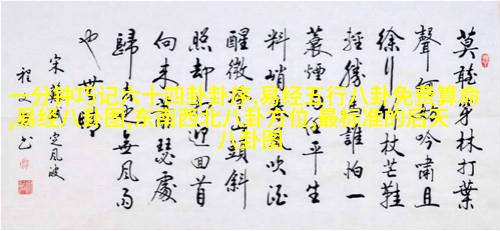 一分钟巧记六十四卦卦序,易经五行八卦免费算命
,易经八卦图,东南西北八卦方位,最标准的后天
八卦图
莫聽穿林打葉
聲何妨吟嘯且
徐行竹杖芒鞋
輕勝馬誰怕一
蓑煙雨任平生
料峭春風吹酒
醒微冷山頭斜
照却相迎回首
向来蕭瑟處
歸去也無風雨
也無晴
宋蘇軾定風波